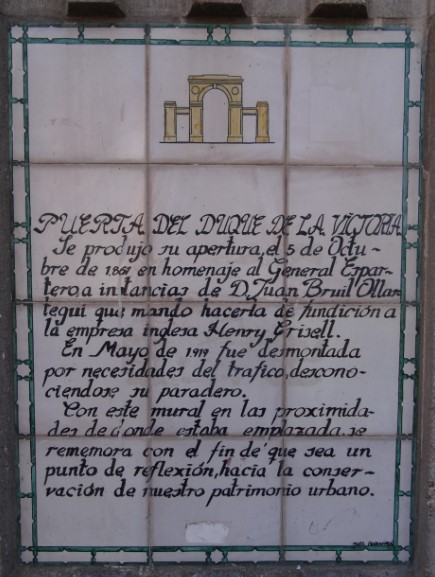 PUERTA DEL DUQUE DE LA VICTORIA
Se produjo su apertura, el 5 de Octu-
bre de 1861 en homenaje al General Espar-
tero, a instancias de D. Juan Bruil Ollar-
tegui que mando hacerla de fundición a
la empresa inglesa Henry Grisell.
En Mayo de 1919 fue desmontada
por necesidades del trafico, descono-
ciendose su paradero.
Con este mural en las proximida-
des de donde estaba emplazada, se
rememora con el fin de que sea un
punto de reflexión, hacia la conser-
vación de nuestro patrimonio urbano.